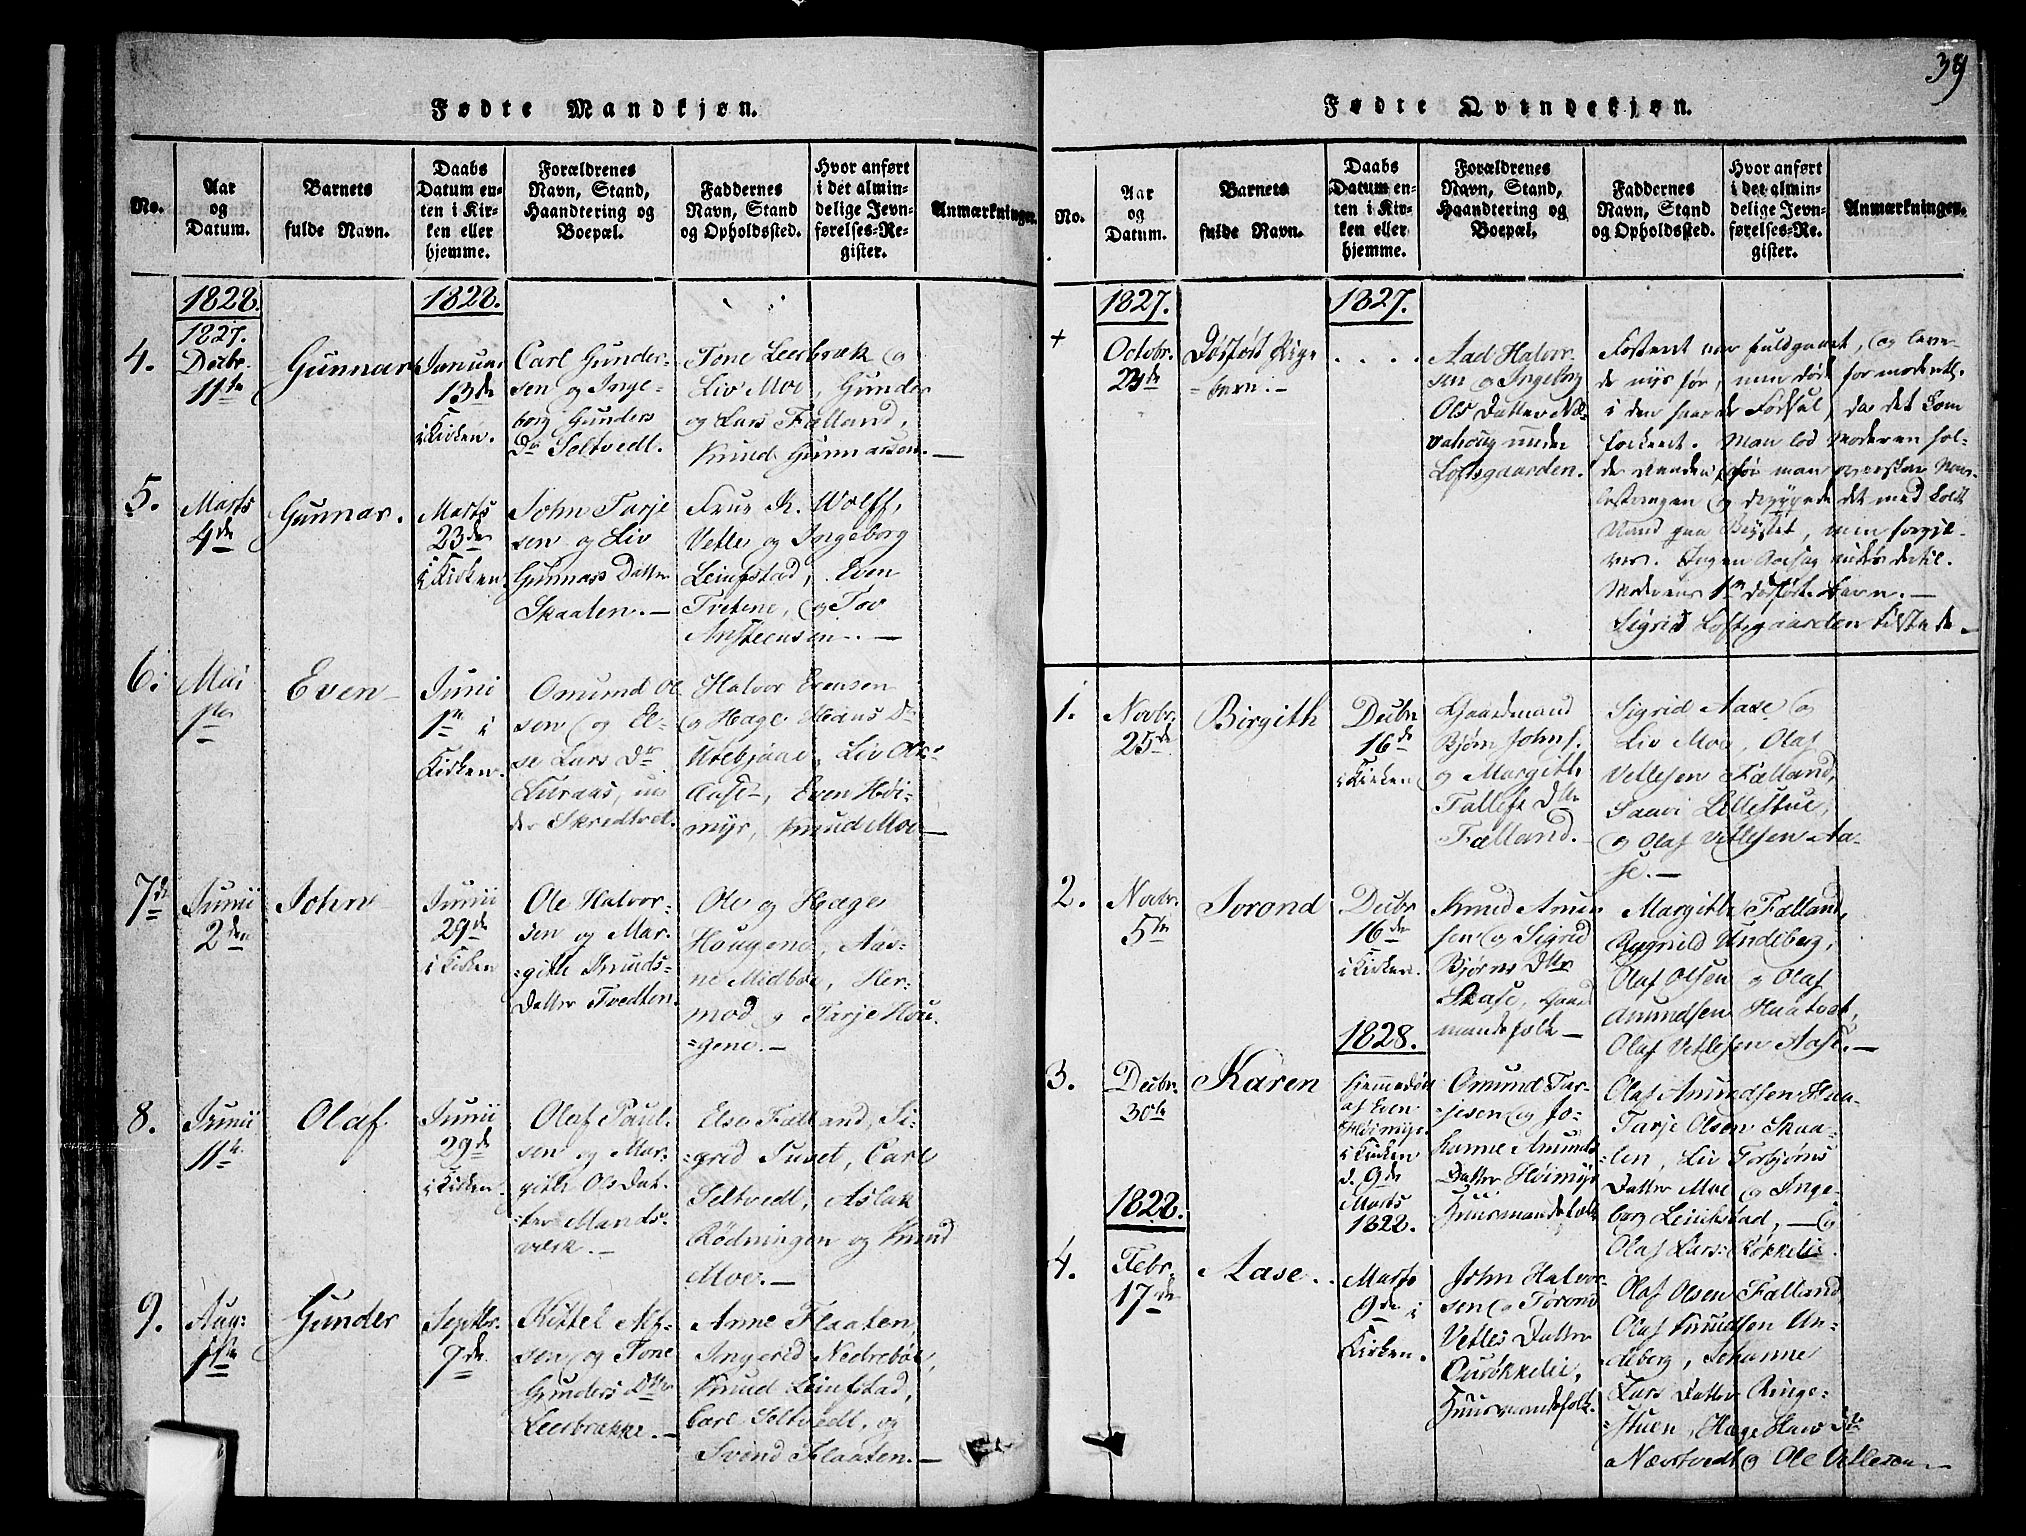 39
Fødte Mandkjøn.
No.
Aar
og
Datum.
Barnets
fulde Navn.
Daabs
Datum en-
ten i Kir-
ken eller
hjemme.
Forældrenes
Navn, Stand,
Haandtering og
Boepæl.
Faddernes
Navn, Stand
og Opholdssted.
Hvor anført
i det almin-
delige Jevn-
førelses-Re-
gister.
Anmærkninger.
1828.
1828.
4.
1827.
Decbr.
11te
Gunnar
Januar
13de
i Kirken.
Carl Gunder-
sen og Inge-
borg Gunders
Dr Seltvedt.
Tone Leerbræk og
Liv Moe, Gunder
og Lars Falland,
Knud Gunnarsen.—
5.
Marts
4de
Gunnar.
Marts
23de
i Kirken
John Tarje
sen og Liv
Gunnars Datter
Skaalen.—
Frue K. Wolff,
Vetle og Ingeborg
Leinfstad, Even
Tretene, og Tov
Anstensen.—
6.
Mai
1ste
Even
Juni
1ste i
Kirken.
Omund Ol
sen og El-
se Lars Dr
Luraas, un
der Skredtvet.
Halvor Evensen
og Hæge Hans Dr
Urebjaae, Liv Ols-
Aase, Even Høi-
myr, Knud Moe—
7de
Junii
2den
John
Junii
29de
i Kirken
Ole Halvor-
sen og Mar-
=gith Knuds-
Datter Tvedten.
Ole og Hæge
Hougene, Aas-
ne Midboe, Her-
mod og Tarje Hou-
=gene.—
8.
Junii
11te
Olaf
Junii
29de
i Kirken
Olaf Paul-
sen og Mar-
gith Ols Dat-
=ter Mands-
værk.—
Else Falland, Si-
=grid Tuset, Carl
Seltvedt, Aslak
Rødningen og Knud
Moe.—
9.
Aug.
Gunder
Septbr.
9de
Kittel Alf-
sen og Tone
Gunders Dtter
Leerbrække.—
Anne Flaaten,
Ingerid Nedrebøe,
Knud Leinfstad,
Carl Seltvedt, og
Svend Flaaten.—
Fødte Qvindekjøn.
No.
Aar
og
Datum.
Barnets
fulde Navn.
Daabs
Datum en-
ten i Kir-
ken eller
hjemme.
Forældrenes
Navn, Stand,
Haandtering og
Boepæl.
Faddernes
Navn, Stand
og Opholdssted.
Hvor anført
i det almin-
delige Jevn-
førelses-Re-
gister.
Anmærkninger.
1827.
1827.
+
Octobr.
23de
Dødfødt Pige
=barn.—
. . . .
Aad Halvor
sen og Ingeborg
Ols Datter Næ-
vahoug under
Loftsgaarden.
Fosteret var fuldgaaet, og leve-
de nys før, men døde formodentl.
i den haarde Fødsel, da det kom
forkeert. Man lod Moderen hol-
de staaende, før man overskar Nav-
lestrengen og dyppede det med koldt
Vand paa Brystet, men forgje-
ves. Ingen Aarsag vides dertil.
Moderens 1ste dødfødte Barn.—
Sigrid Loftsgaarden tilstæde.—
1.
Novbr.
25de
Birgith
Decbr
16de
i Kirken
Gaardmand
Bjørn Johns.
og Margith
Tallefs Dtter
Falland.—
Sigrid Aase og
Liv Moe, Olaf
Vetlesen Falland,
Saavi Lillestue,
og Olaf Vetlesen Aa-
se.—
2.
Novbr.
5te
Torond
Decbr
16de
i Kirken.
Knud Amun
sen og Sigrid
Bjørns Dtter
Aase, Gaard
mandsfolk—
Margith Falland,
Ragnild Undeberg,
Olaf Olsen og Olaf
Amundsen Haatvet,
Olaf Vetlesen Aase.—
1828.
3.
Decbr.
30te
Karen
Hjemmedøbt
af Even
Høimyr.
i Kirken
d. 9de
Marts
1828.
Omund Tar-
jesen og Jo-
hanne Amunds
Datter Høimyr
Huusmandsfolk
Olaf Amundsen Haa-
Tarje Olsen Skaa-
=len, Liv Torbjørns
Datter Moe og Inge-
borg Leinfstad,— og
Olaf Lars: Røkkelie.
1828.
4.
Febr.
17de
Aase.
Marts
9de i
Kirken.
John Halvor
sen og Torond
Vetles Datter
Huusmandsfolk.
Olaf Olsen Falland,
Olaf Knudsen Un-
deberg, Johanne
Lars Datter Ringe-
=stuen, Hæge Hans Dtr
Nævstvedt og Ole Vetlesen—